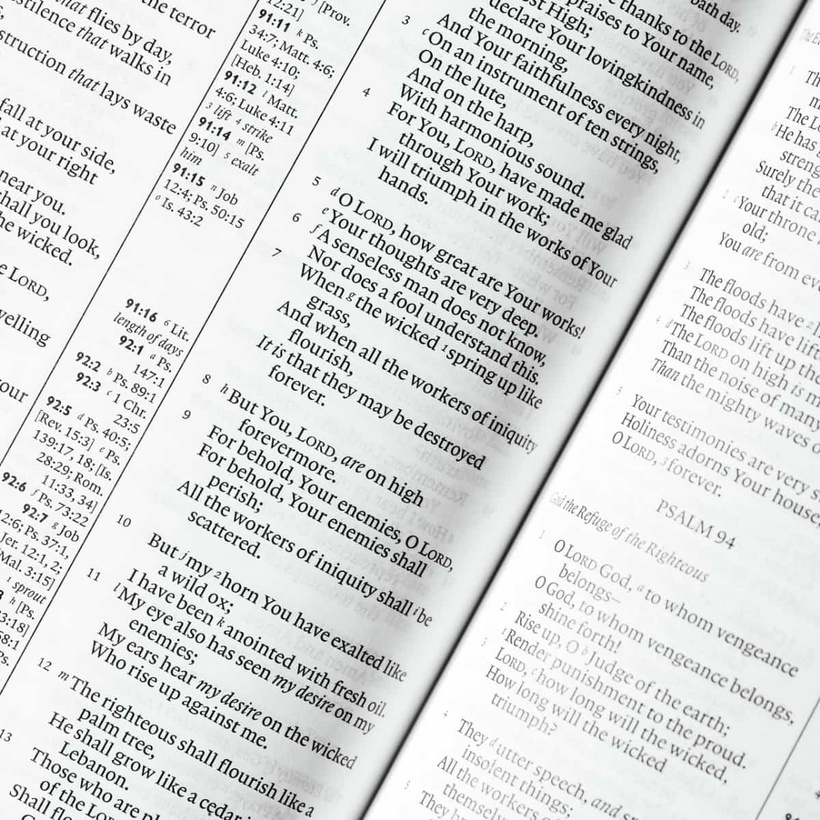 what flies by day,
the terror
pestilence that walks in
destruction that lays waste
fall at your side,
at your right
near you.
shall you look,
the wicked.
LORD,
dwelling
your
12:21]
[Prov.
91:11 k Ps.
34:7; Matt. 4:6;
Luke 4:10;
[Heb. 1:14]
91:12 l Matt.
4:6; Luke 4:11
3 lift 4 strike
91:14 m [Ps.
9:10] 5 exalt
him
91:15 n Job
12:4; Ps. 50:15
o Is. 43:2
91:16 6 Lit.
length of days
92:1 a Ps.
147:1
92:2 b Ps. 89:1
92:3 c 1 Chr.
23:5
92:5 d Ps. 40:5;
[Rev. 15:3] e Ps.
139:17, 18; [Is.
28:29; Rom.
11:33, 34]
92:6 f Ps. 73:22
92:7 g Job
12:6; Ps. 37:1,
Jer. 12:1, 2;
Mal. 3:15]
1 sprout
h [Ps.
Ps.
thanks to the LORD,
praises to Your name,
Most High;
3 declare Your lovingkindness in
the morning,
And Your faithfulness every night,
c On an instrument of ten strings,
On the lute,
And on the harp,
With harmonious sound.
4 For You, LORD, have made me glad
through Your work;
I will triumph in the works of Your
hands.
5 d O LORD, how great are Your works!
e Your thoughts are very deep.
6 f A senseless man does not know,
Nor does a fool understand this.
7 When g the wicked 1 spring up like
grass,
And when all the workers of iniquity
flourish,
It is that they may be destroyed
forever.
8 h But You, LORD, are on high
forevermore.
9 For behold, Your enemies, O LORD,
For behold, Your enemies shall
perish;
All the workers of iniquity shall i be
scattered.
10 But j my 2 horn You have exalted like
a wild ox;
I have been k anointed with fresh oil.
11 l My eye also has seen my desire on my
enemies;
My ears hear my desire on the wicked
Who rise up against me.
12 m The righteous shall flourish like a
palm tree,
He shall grow like a cedar in
Lebanon.
13 Those who are
of the LORD
Shall
The L
He has
streng
Surely the
that it ca
2 Your throne
old;
You are from ev
3 The floods have
The floods have lift
The floods lift up the
4 The LORD on high is m
Than the noise of many
Than the mighty waves o
5 Your testimonies are very s
Holiness adorns Your house,
O LORD, 3 forever.
PSALM 94
God the Refuge of the Righteous
1 O LORD God, a to whom vengeance
belongs—
O God, to whom vengeance belongs,
shine forth!
2 Rise up, O b Judge of the earth;
Render punishment to the proud.
3 LORD, c how long will the wicked,
How long will the wicked
triumph?
4 They d utter speech, and
insolent things;
All the workers
themselv
5 They